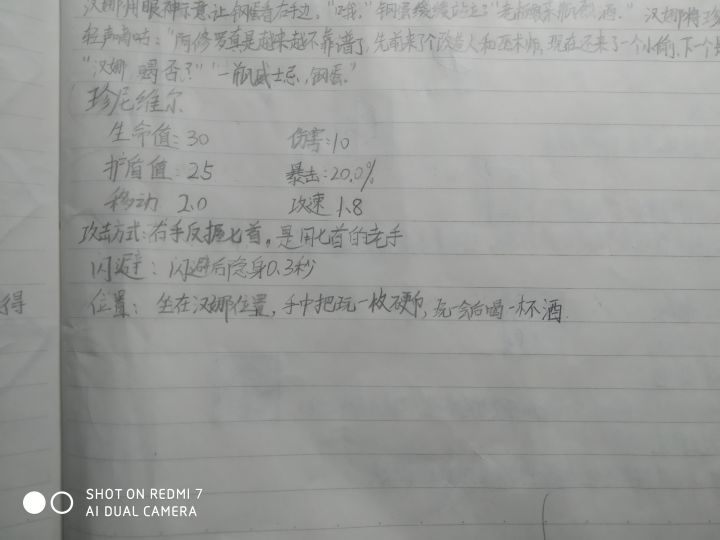 汉娜用眼神示意让钢蛋害右边,"哦."钢蛋缓缓站起"老板娘来瓶烈酒." 汉娜将珍
轻声嘀咕:"阿修罗真是越来越不靠谱了,先前来了个改造人和巫术师,现在还来了一个小偷,下一个
"汉娜 喝否?""一瓶威士忌,钢蛋."
珍尼维尔
生命值:30 伤害:10
护盾值:25 暴击:20.0%
移动 2.0 攻速 1.8
攻击方式:右手反握匕首,是用匕首的老手
闪避:闪避后隐身0.3秒
得 位置:坐在汉娜位置,手中把玩一枚硬币,玩一会后喝一杯酒.
SHOT ON REDMI 7
AI DUAL CAMERA